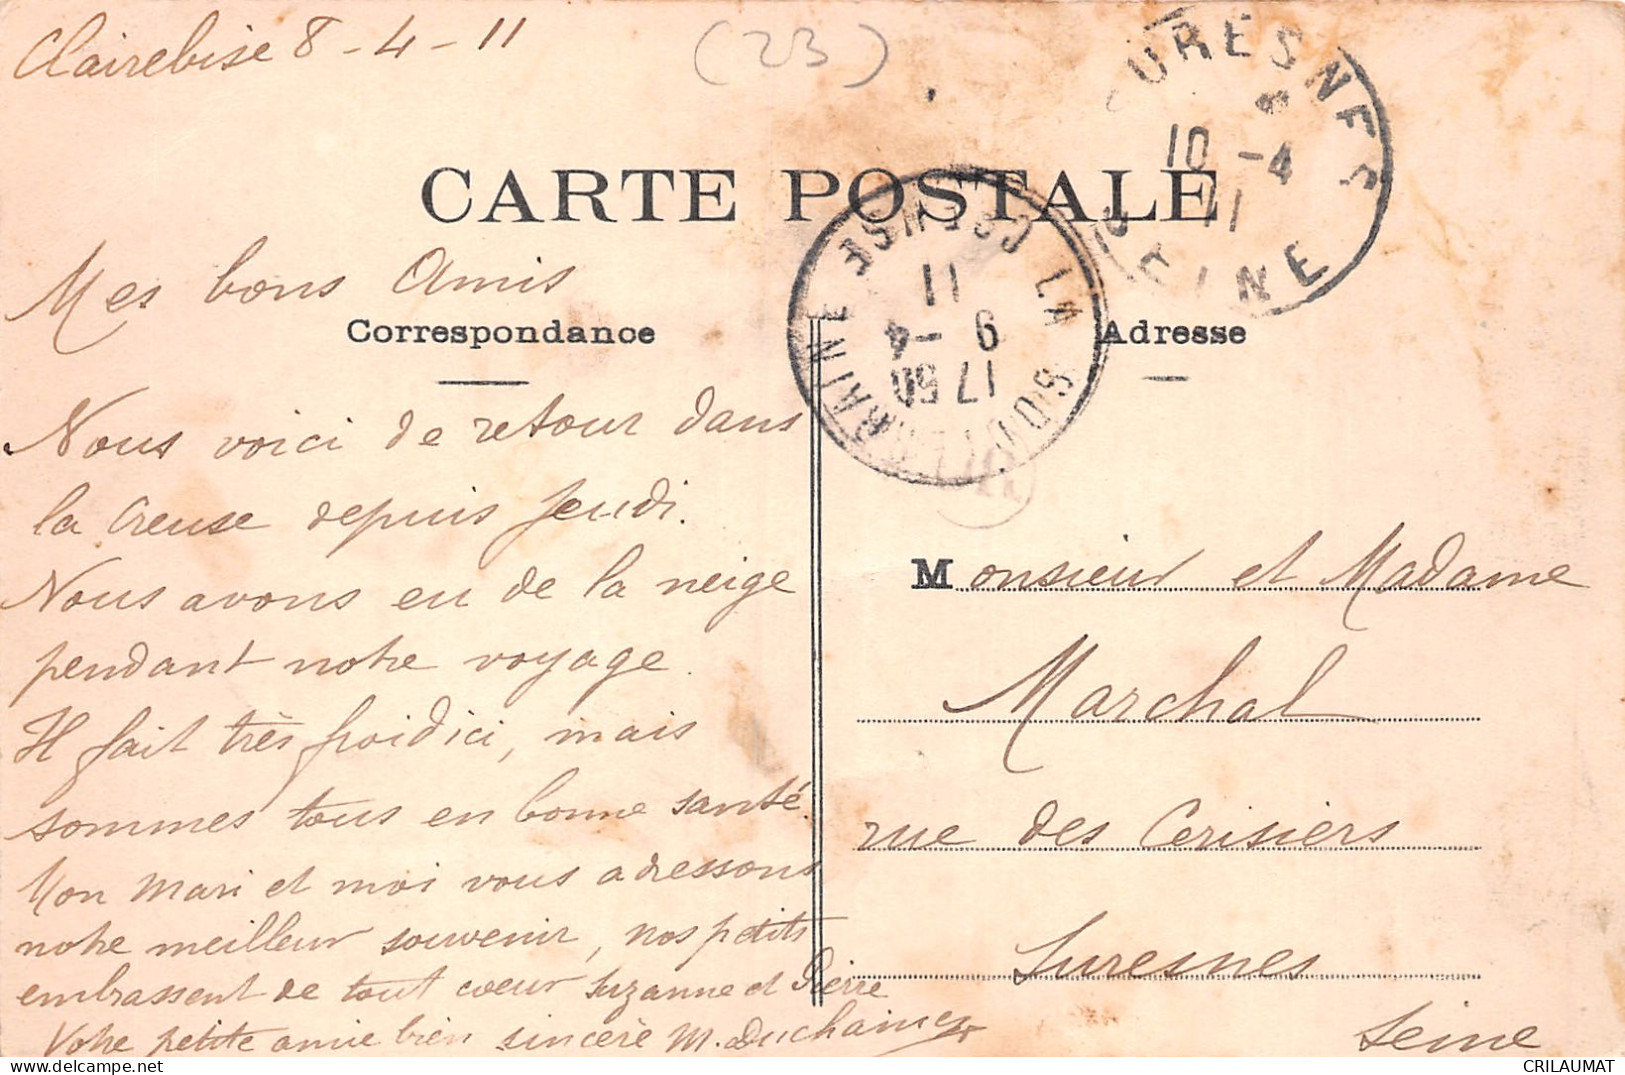 Clairebise 8-4-11
(23)
SURESNES
10 -4
11
SEINE
CARTE POSTALE
LA SOUTERRAINE CREUSE
17 50
9 -4
11
Mes bons Amis
Correspondance
Nous voici de retour dans
la Creuse depuis Jeudi.
Nous avons eu de la neige
pendant notre voyage.
Il fait très froid ici, mais
sommes tous en bonne santé.
Mon mari et moi vous adressons
notre meilleur souvenir, nos petits
embrassent de tout coeur Suzanne et Pierre
Votre petite amie bien sincère M. Duchainey
Adresse
Monsieur et Madame
Marchal
rue des Cerisiers
Suresnes
Seine
CRILAUMAT